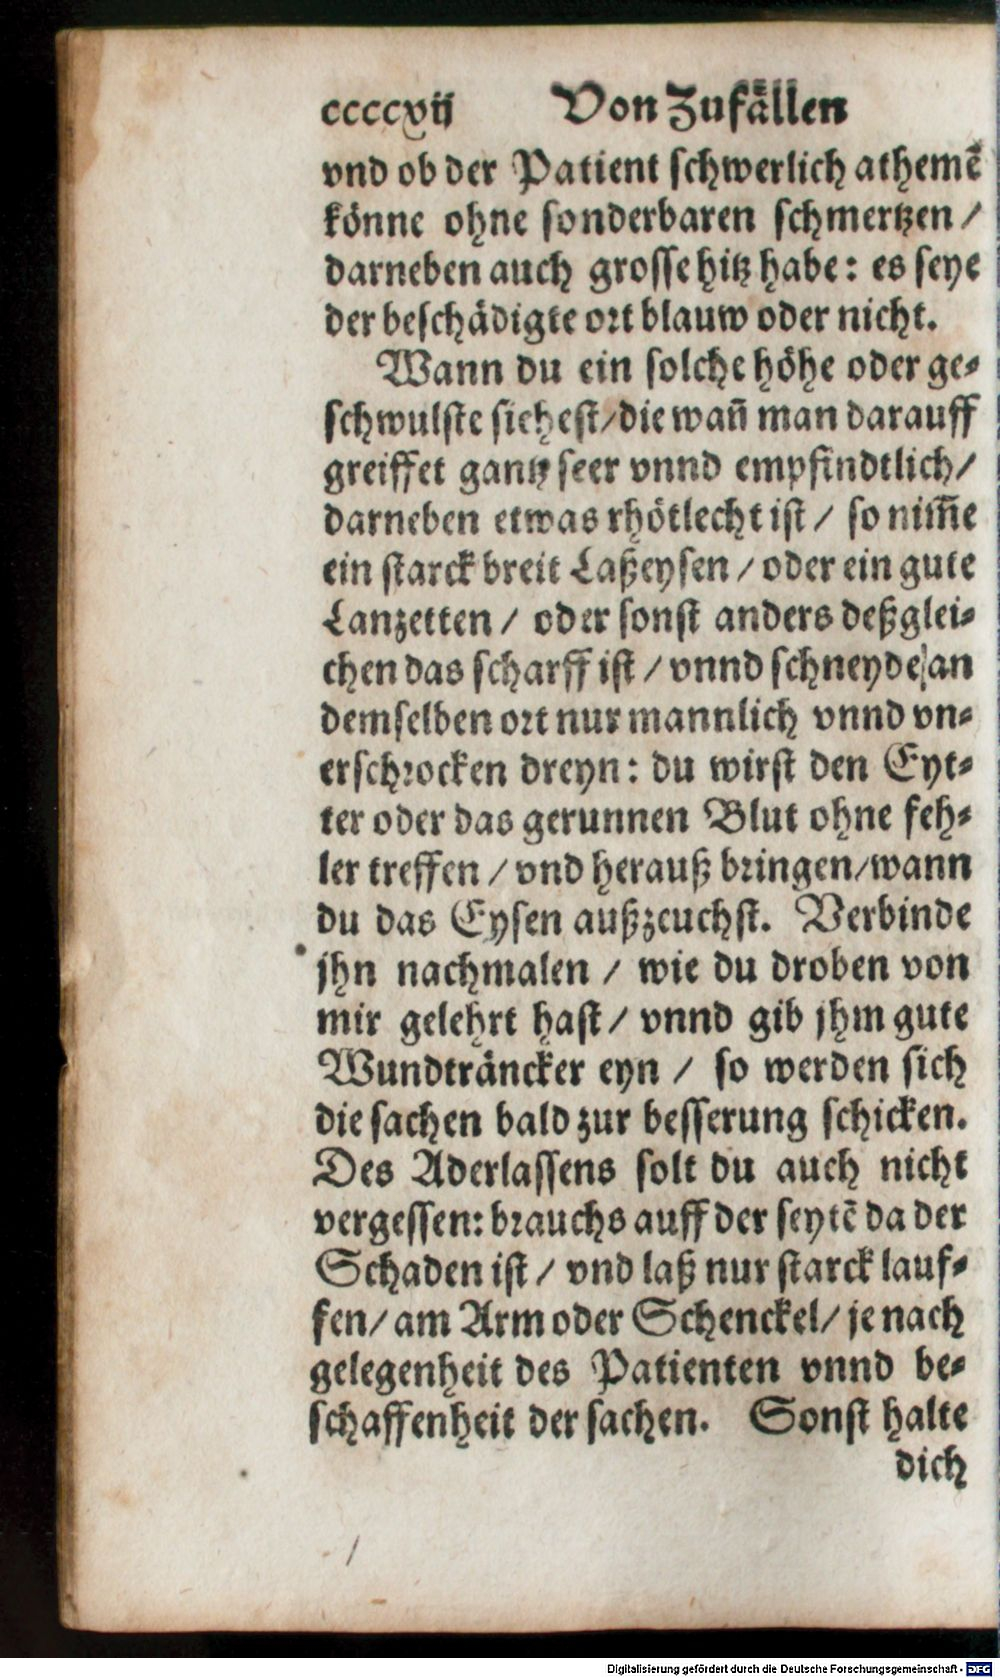 ccccxij Von Zufällen
vnd ob der Patient schwerlich athemẽ
könne ohne sonderbaren schmertzen /
darneben auch grosse hitz habe: es seye
der beschädigte ort blauw oder nicht.
Wann du ein solche höhe oder ge-
schwulste siehest/die wañ man darauff
greiffet gantz seer vnnd empfindtlich/
darneben etwas rhötlecht ist / so nim̃e
ein starck breit Laßeysen / oder ein gute
Lanzetten / oder sonst anders deßglei-
chen das scharff ist / vnnd schneyde an
demselben ort nur mannlich vnnd vn-
erschrocken dreyn: du wirst den Eyt-
ter oder das gerunnen Blut ohne feh-
ler treffen / vnd herauß bringen/wann
du das Eysen außzeuchst. Verbinde
jhn nachmalen / wie du droben von
mir gelehrt hast / vnnd gib jhm gute
Wundträncker eyn / so werden sich
die sachen bald zur besserung schicken.
Des Aderlassens solt du auch nicht
vergessen: brauchs auff der seytẽ da der
Schaden ist / vnd laß nur starck lauf-
fen/ am Arm oder Schenckel/ je nach
gelegenheit des Patienten vnnd be-
schaffenheit der sachen. Sonst halte
dich
Digitalisierung gefördert durch die Deutsche Forschungsgemeinschaft - DFG